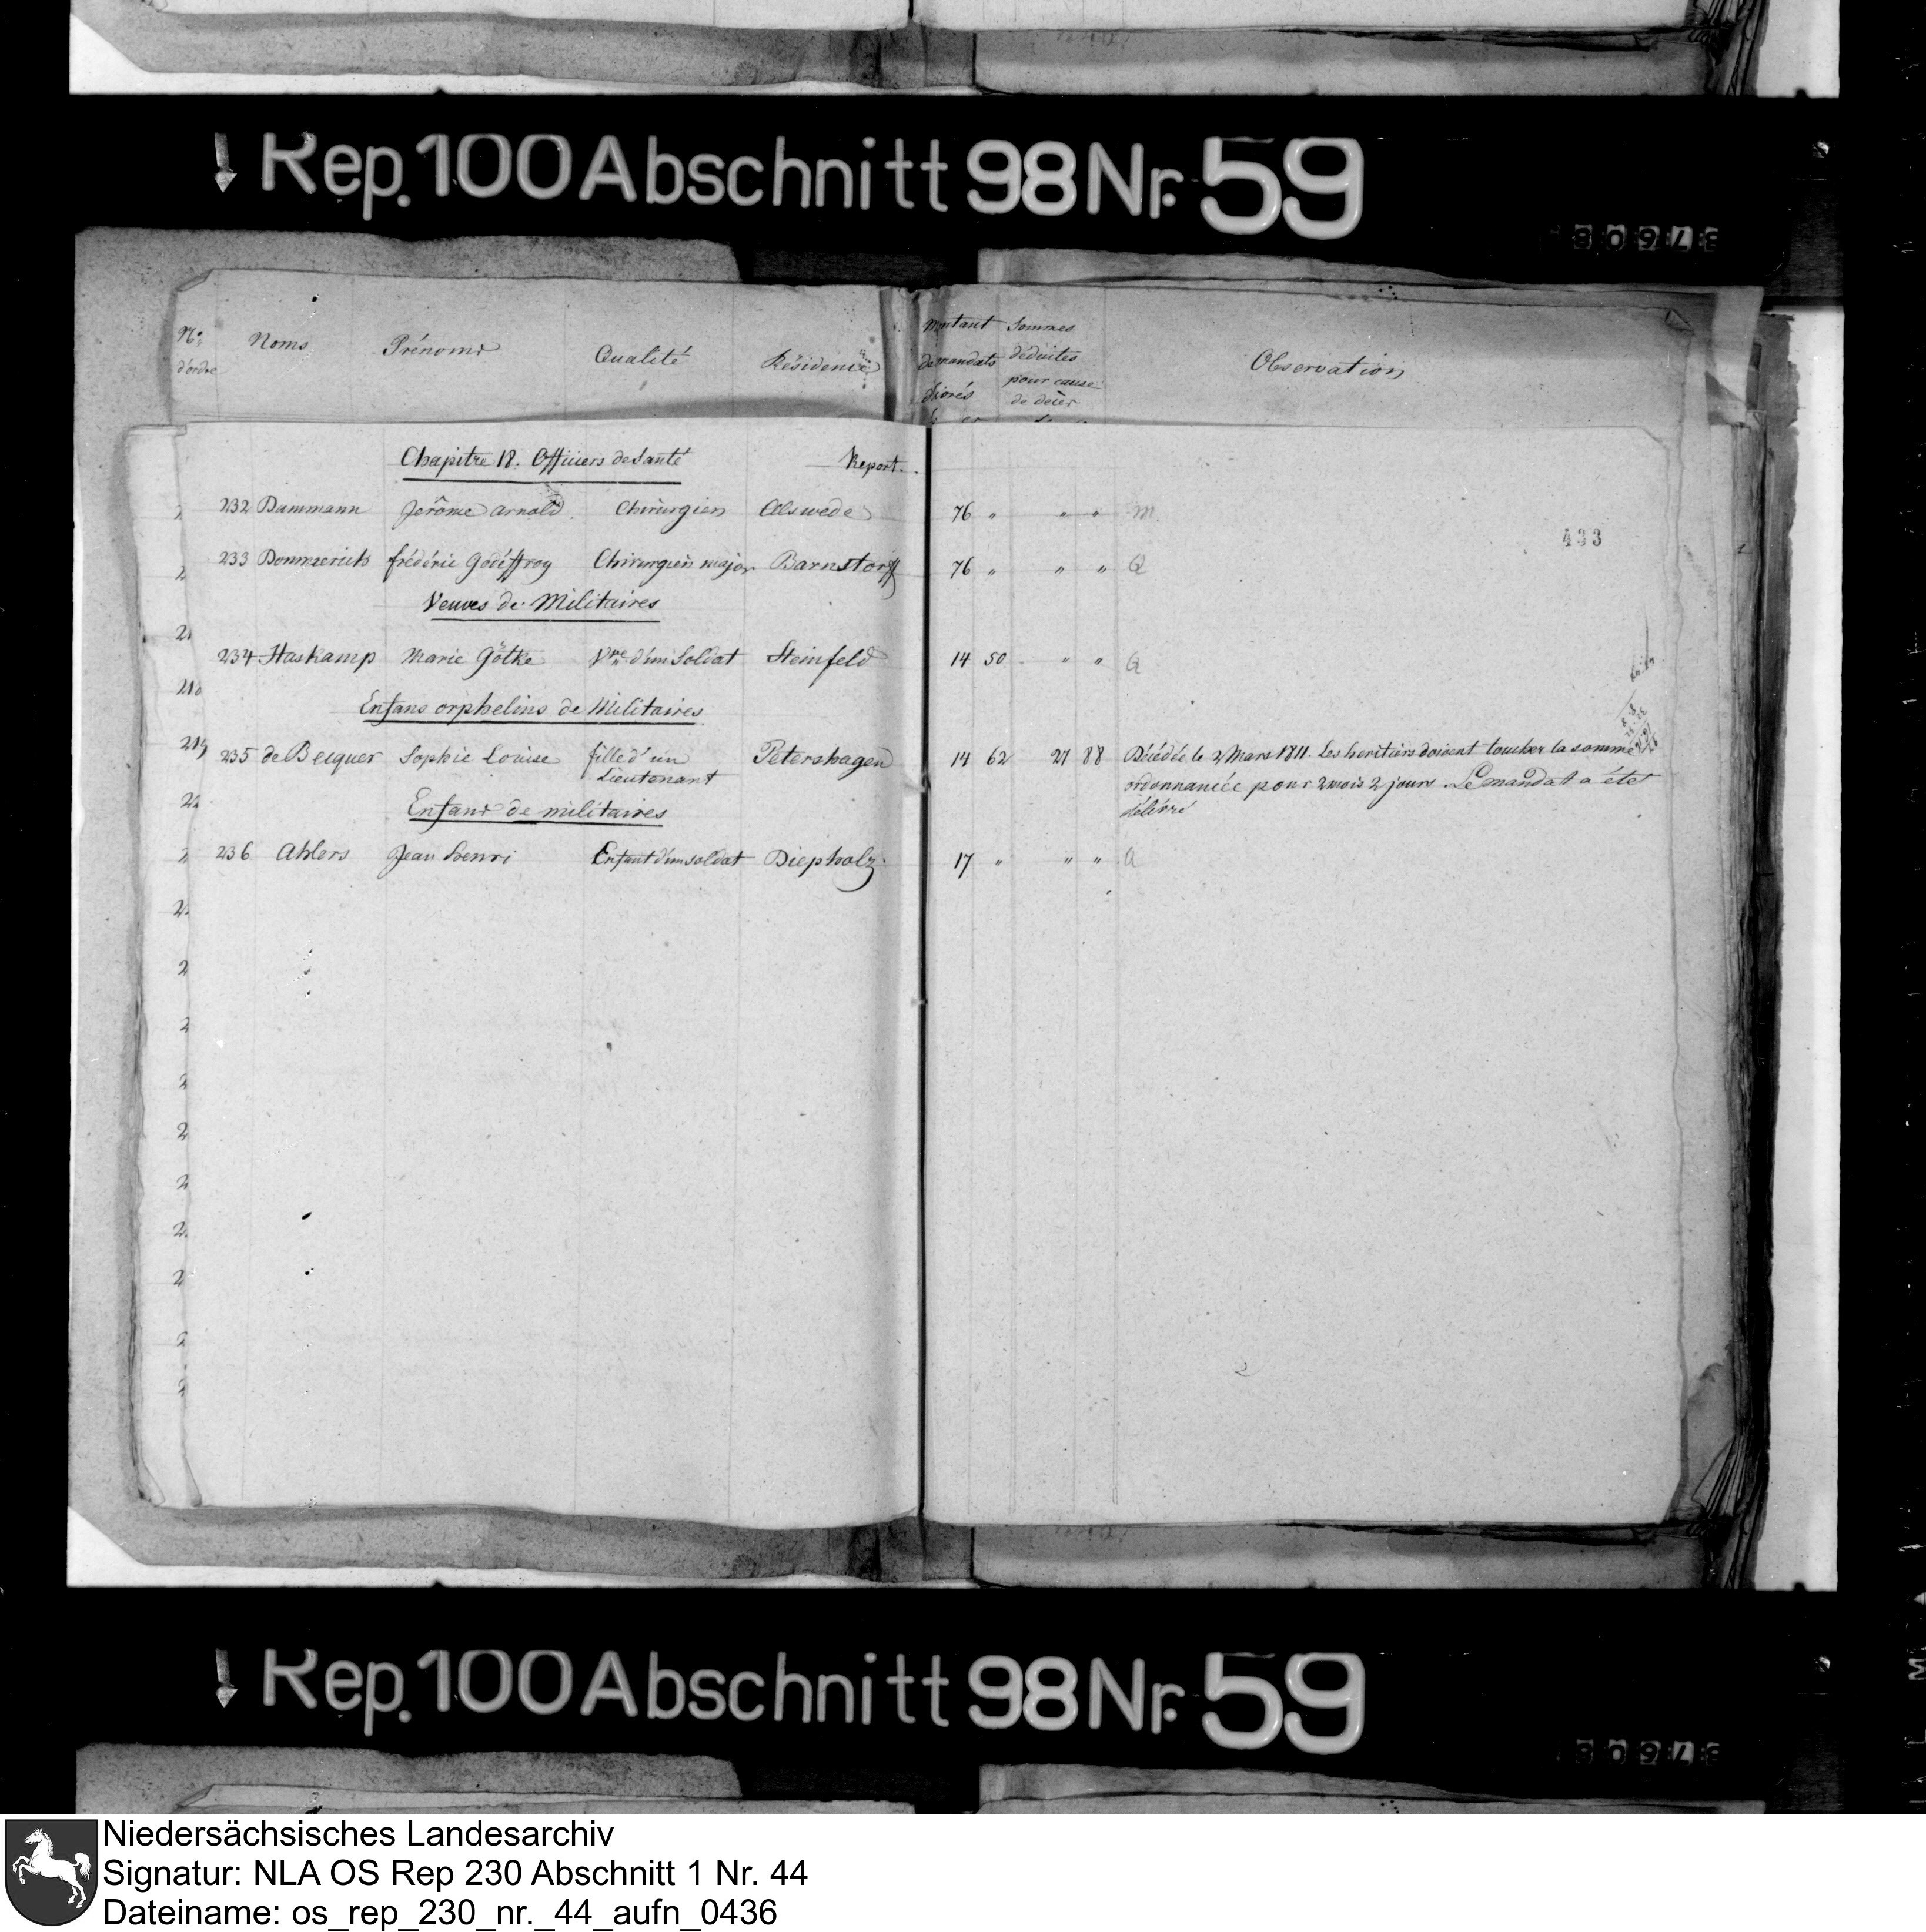 Rep. 100 Abschnitt 98 Nr. 59
No. d'ordre Noms Prénoms Qualité Résidence Montant de mandats Sommes déduites pour cause de décès Observation
Chapitre 18. Officiers de Santé Report.
232 Dammann Jerôme Arnold Chirurgien Alswede 76 " " " M
433
233 Dommerich frédéric Godéffroy Chirurgien major Barnstorff 76 " " " Q
Veuves de Militaires
234 Haskamp Marie Götke Vve d'un Soldat Steinfeld 14 50 " " Q
Enfans orphelins de Militaires
235 de Becquer Sophie Louise fille d'un Lieutenant Petershagen 14 62 27 88 Décédée le 2 Mars 1811. Les heritiers doivent toucher la somme
ordonnancée pour 2 mois 2 jours. Le mandat a été
délivré
Enfans de militaires
236 Ahlers Jean Henri Enfant d'un soldat Diepholz 17 " " " Q
Rep. 100 Abschnitt 98 Nr. 59
Niedersächsisches Landesarchiv
Signatur: NLA OS Rep 230 Abschnitt 1 Nr. 44
Dateiname: os_rep_230_nr._44_aufn_0436